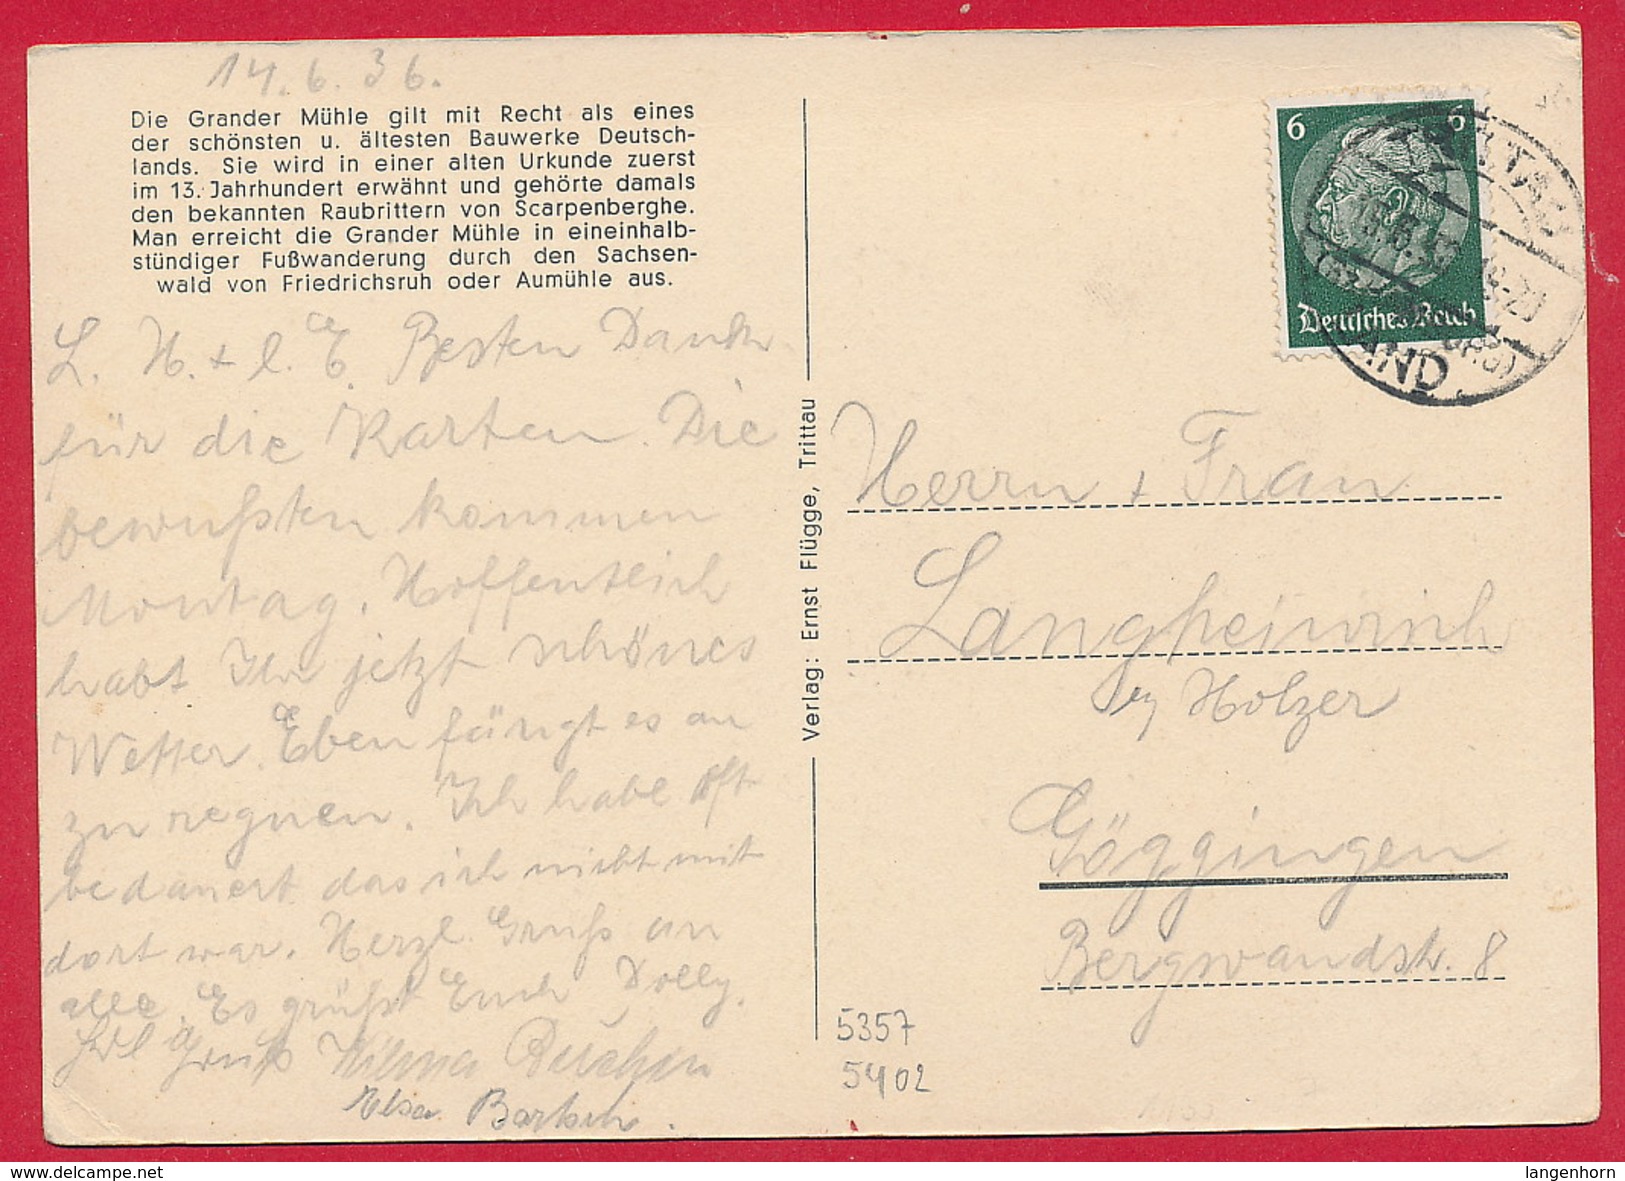 14.6.36.
Die Grander Mühle gilt mit Recht als eines
der schönsten u. ältesten Bauwerke Deutsch-
lands. Sie wird in einer alten Urkunde zuerst
im 13. Jahrhundert erwähnt und gehörte damals
den bekannten Raubrittern von Scarpenberghe.
Man erreicht die Grander Mühle in eineinhalb-
stündiger Fußwanderung durch den Sachsen-
wald von Friedrichsruh oder Aumühle aus.
L. H. + l. E. Besten Dank
für die Karten. Die
bewußten kommen
Montag. Hoffentlich
habt Ihr jetzt schönes
Wetter. Eben fängt es an
zu regnen. Ich habe oft
bedauert das ich nicht mit
dort war. Herzl. Gruß an
alle. Es grüßt Euch Dolly.
Gruß Wilma
Elsa Bartsch.
Verlag: Ernst Flügge, Trittau
6 6
Deutsches Reich
15.6.36 18-20
LAND
Herrn + Frau
Langheinrich
b/ Holzer
Göggingen
Bergwandstr. 8
5357
5402
www.delcampe.net
langenhorn